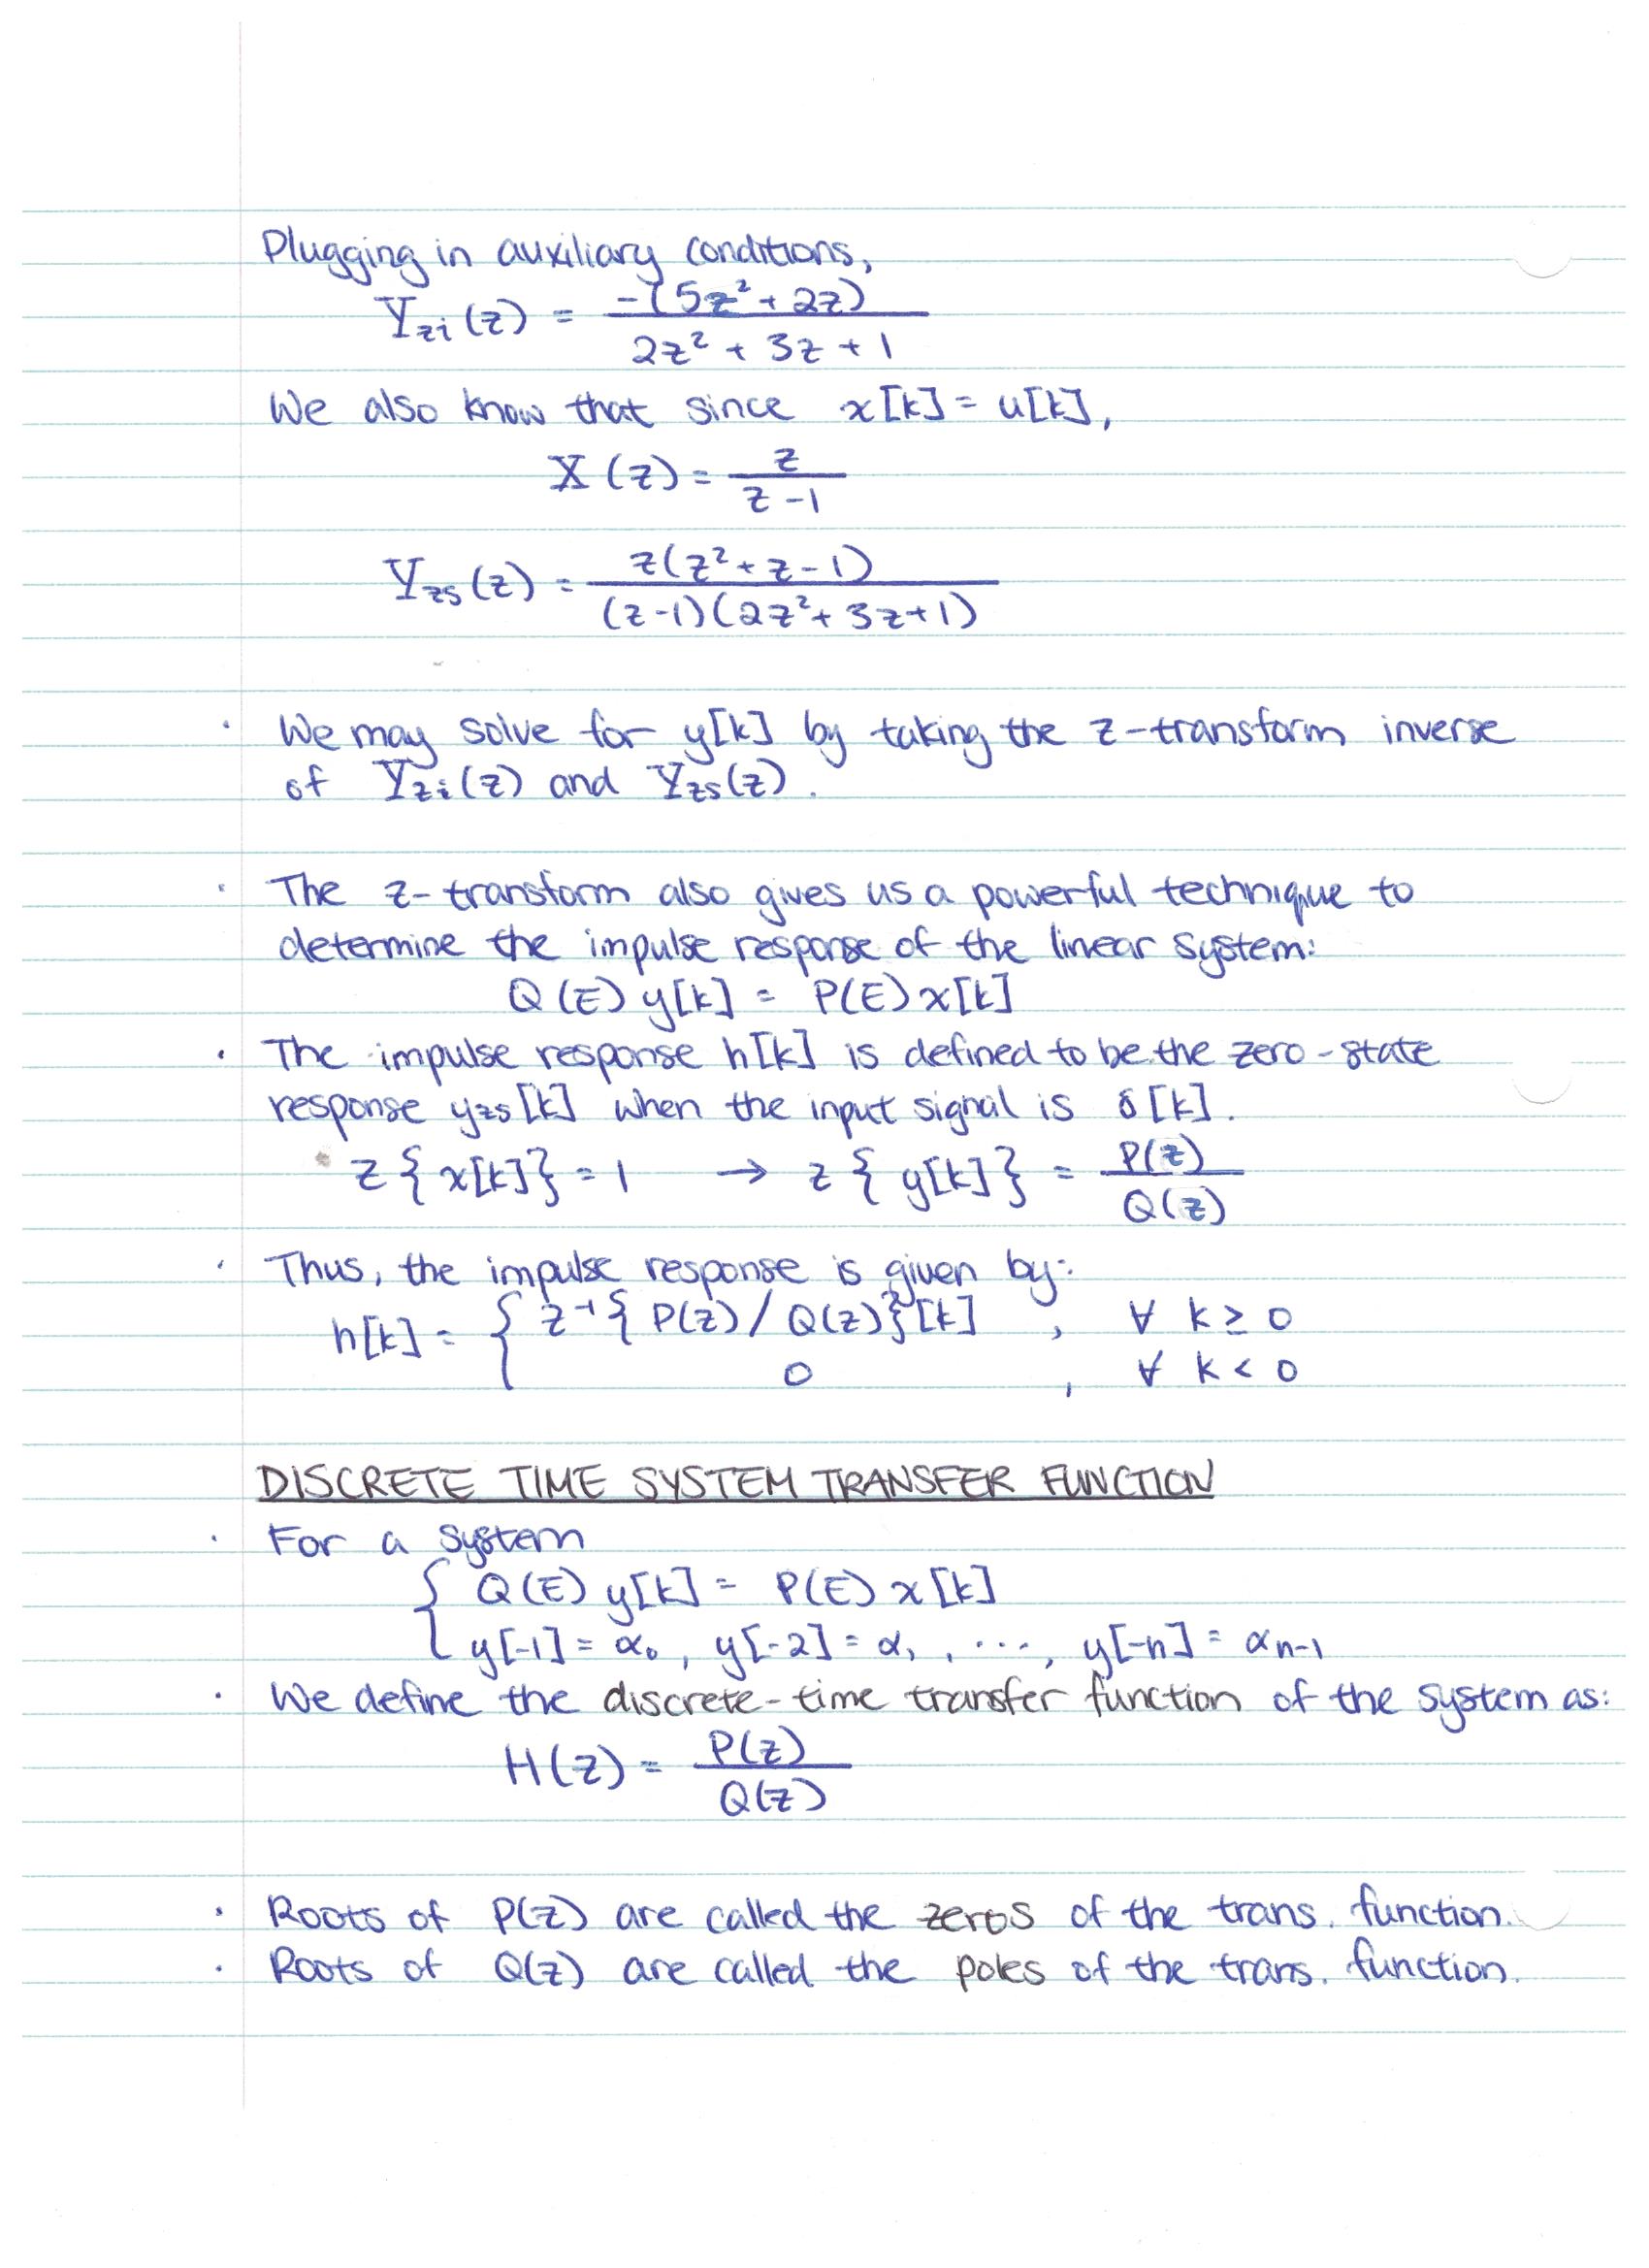 Plugging in auxiliary conditions,
Yzi(z) = -(5z² + 2z) / 2z² + 3z + 1
We also know that since x[k] = u[k],
X(z) = z / z-1
Yzs(z) = z(z² + z - 1) / (z-1)(2z² + 3z + 1)
· We may solve for y[k] by taking the z-transform inverse
of Yzi(z) and Yzs(z).
· The z-transform also gives us a powerful technique to
determine the impulse response of the linear system:
Q(E) y[k] = P(E) x[k]
· The impulse response h[k] is defined to be the zero-state
response yzs[k] when the input signal is δ[k].
z{x[k]} = 1 → z{y[k]} = P(z) / Q(z)
· Thus, the impulse response is given by:
h[k] = { z⁻¹{P(z)/Q(z)}[k] , ∀ k ≥ 0
0 , ∀ k < 0
DISCRETE TIME SYSTEM TRANSFER FUNCTION
· For a system
{ Q(E) y[k] = P(E) x[k]
y[-1] = α₀, y[-2] = α₁, ..., y[-n] = αn-1
· We define the discrete-time transfer function of the system as:
H(z) = P(z) / Q(z)
· Roots of P(z) are called the zeros of the trans. function.
· Roots of Q(z) are called the poles of the trans. function.